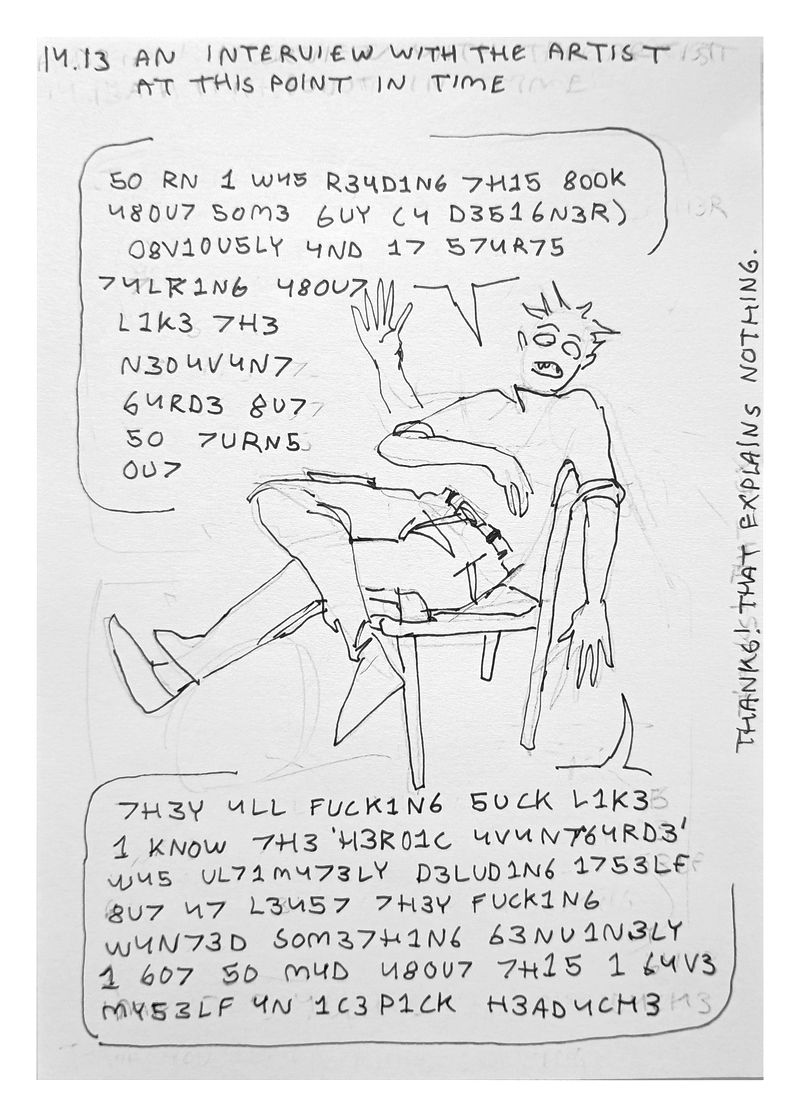 14.13 AN INTERVIEW WITH THE ARTIST
AT THIS POINT IN TIME
50 RN 1 W45 R34D1N6 7H15 800K
480U7 50M3 6UY (4 D3516N3R)
08V10U5LY 4ND 17 574R75
74LK1N6 480U7
L1K3 7H3
N304V4N7
64RD3 8U7
50 7URN5
0U7
7H3Y 4LL FUCK1N6 5UCK L1K3
1 KNOW 7H3 'H3R01C 4V4N764RD3'
W45 UL71M473LY D3LUD1N6 1753LF
8U7 47 L3457 7H3Y FUCK1N6
W4N73D 50M37H1N6 63NU1N3LY
1 607 50 M4D 480U7 7H15 1 64V3
MY53LF 4N 1C3 P1CK H3AD4CH3
THANKS! THAT EXPLAINS NOTHING.